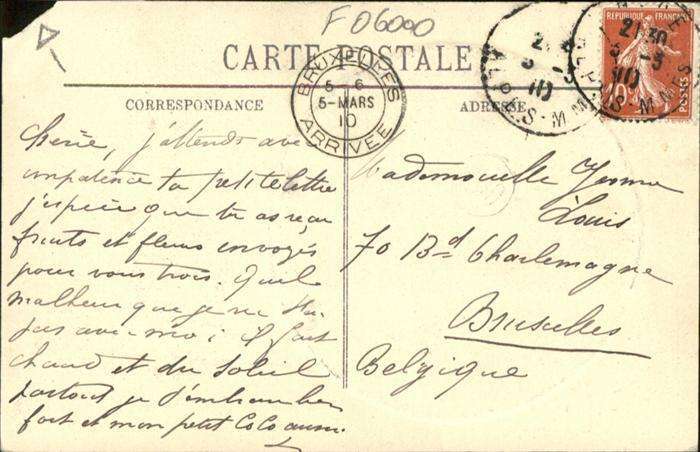 F 06000
CARTE POSTALE
CORRESPONDANCE
ADRESSE
BRUXELLES
5-6
5-MARS
10
ARRIVÉE
REPUBLIQUE FRANÇAISE
10
POSTES
21 30
5-3
10
Chérie, j'attends avec
impatience ta petite lettre
j'espère que tu as reçu
fruits et fleurs envoyés
pour vous trois. Quel
malheur que je ne t'ai
pas avec moi; il fait
chaud et du soleil
partout je t'embrasse bien
fort et mon petit CoCo aussi.
Mademoiselle Yvonne
Louis
70 Bd Charlemagne
Bruxelles
Belgique